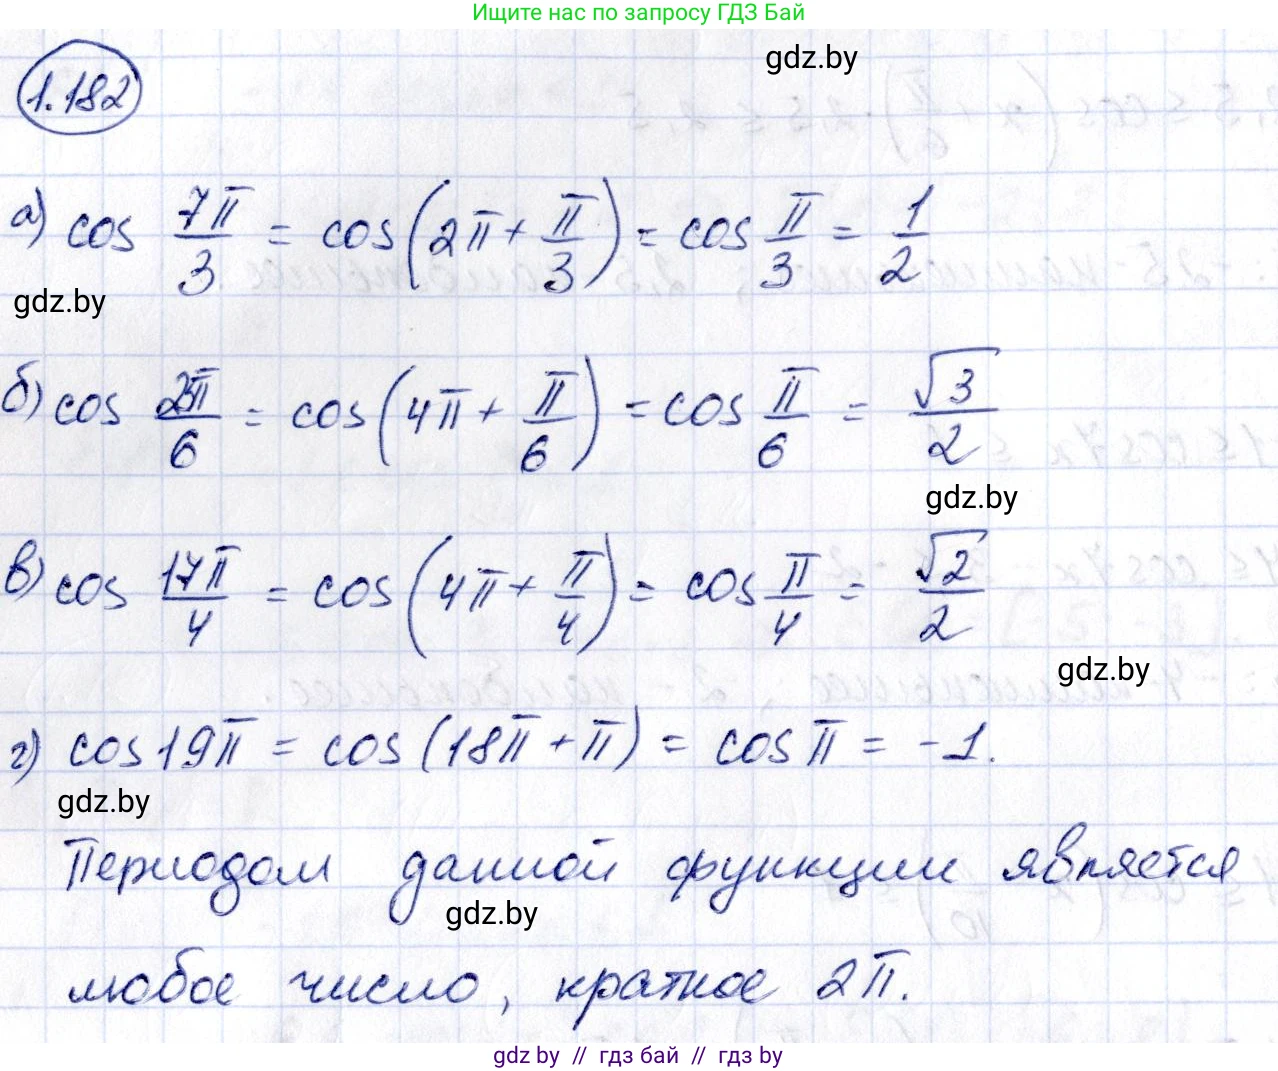 Ищите нас по запросу ГДЗ Бай
gdz.by
1.182
а) cos 7π/3 = cos(2π + π/3) = cos π/3 = 1/2
gdz.by
б) cos 25π/6 = cos(4π + π/6) = cos π/6 = √3/2
gdz.by
в) cos 17π/4 = cos(4π + π/4) = cos π/4 = √2/2
gdz.by
г) cos 19π = cos(18π + π) = cos π = -1.
gdz.by
Периодом данной функции является
gdz.by
любое число, кратное 2π.
gdz by // гдз бай // гдз by